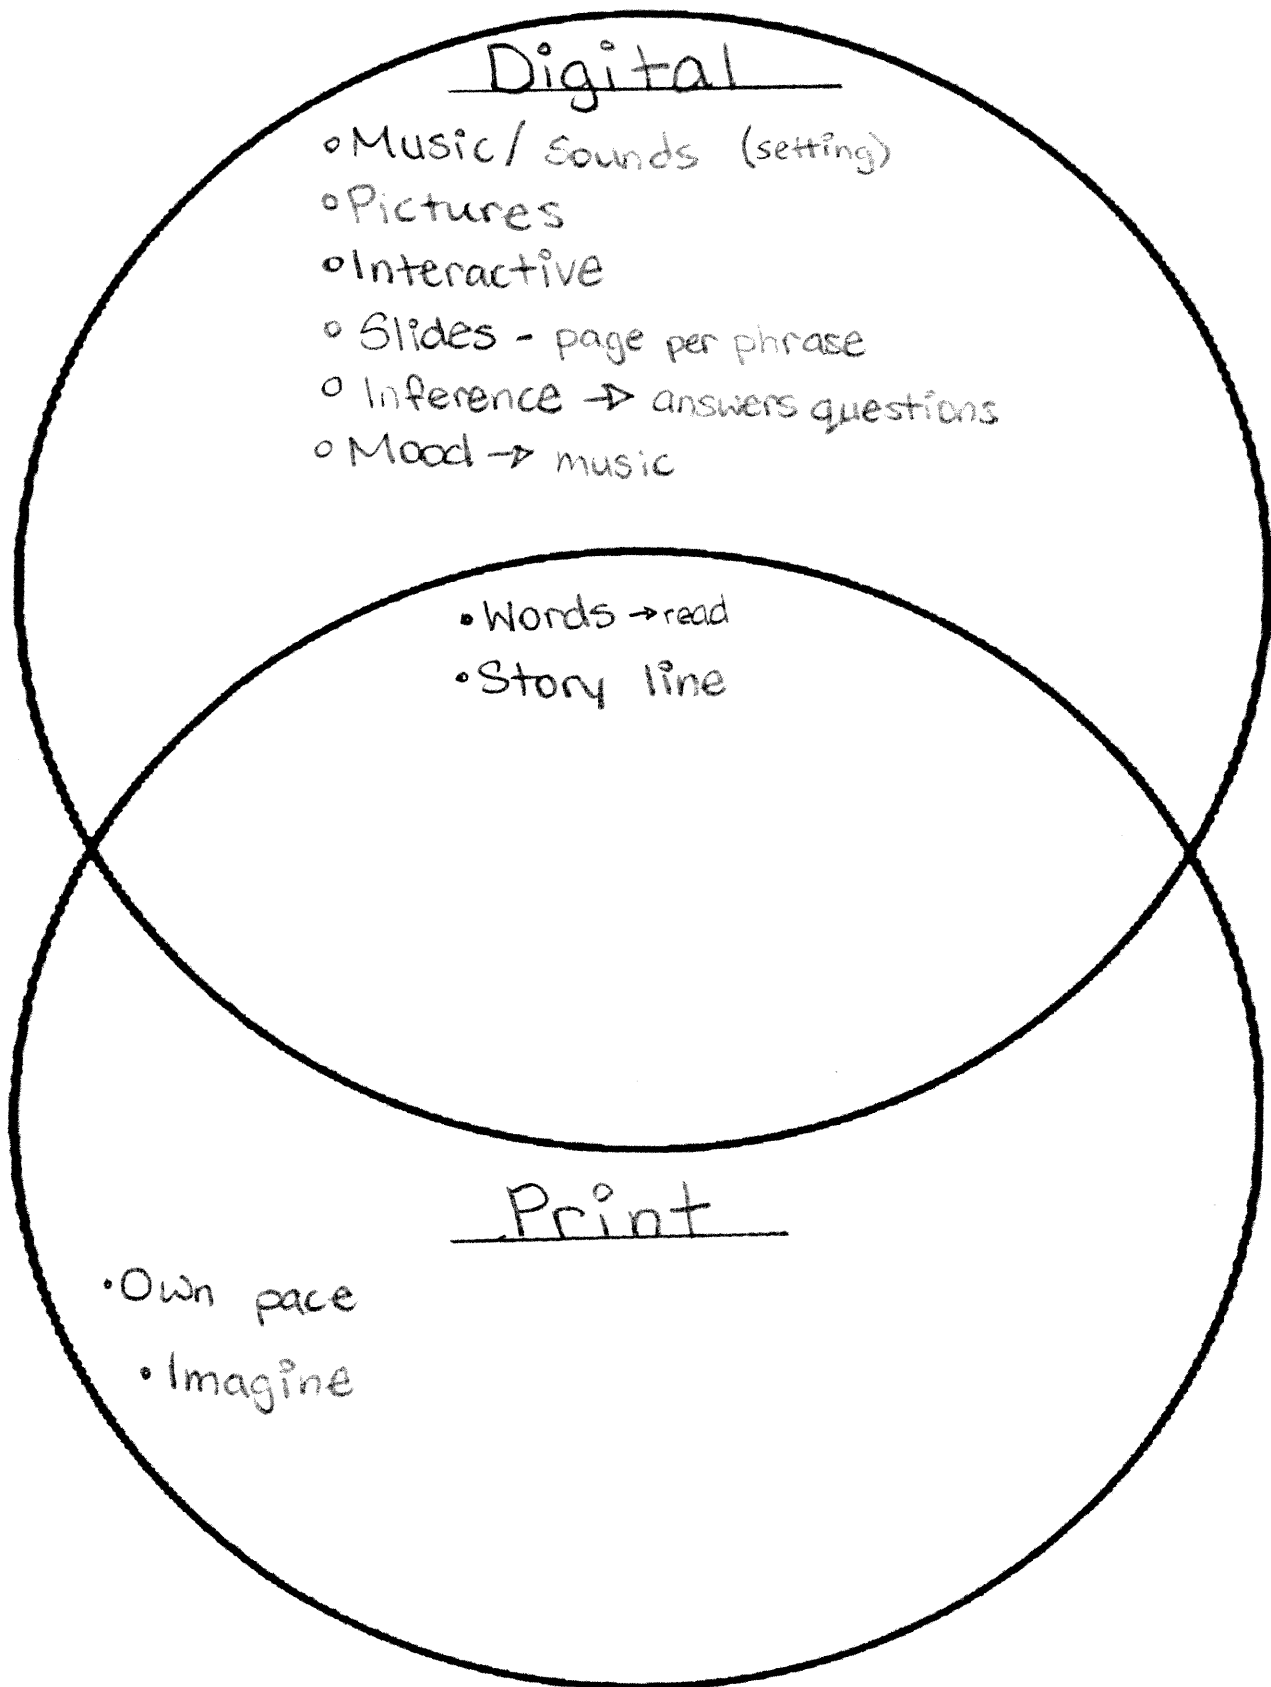 Digital
• Music/ Sounds (setting)
• Pictures
• Interactive
• Slides - page per phrase
• Inference → answers questions
• Mood → music
• Words → read
• Story line
Print
• Own pace
• Imagine